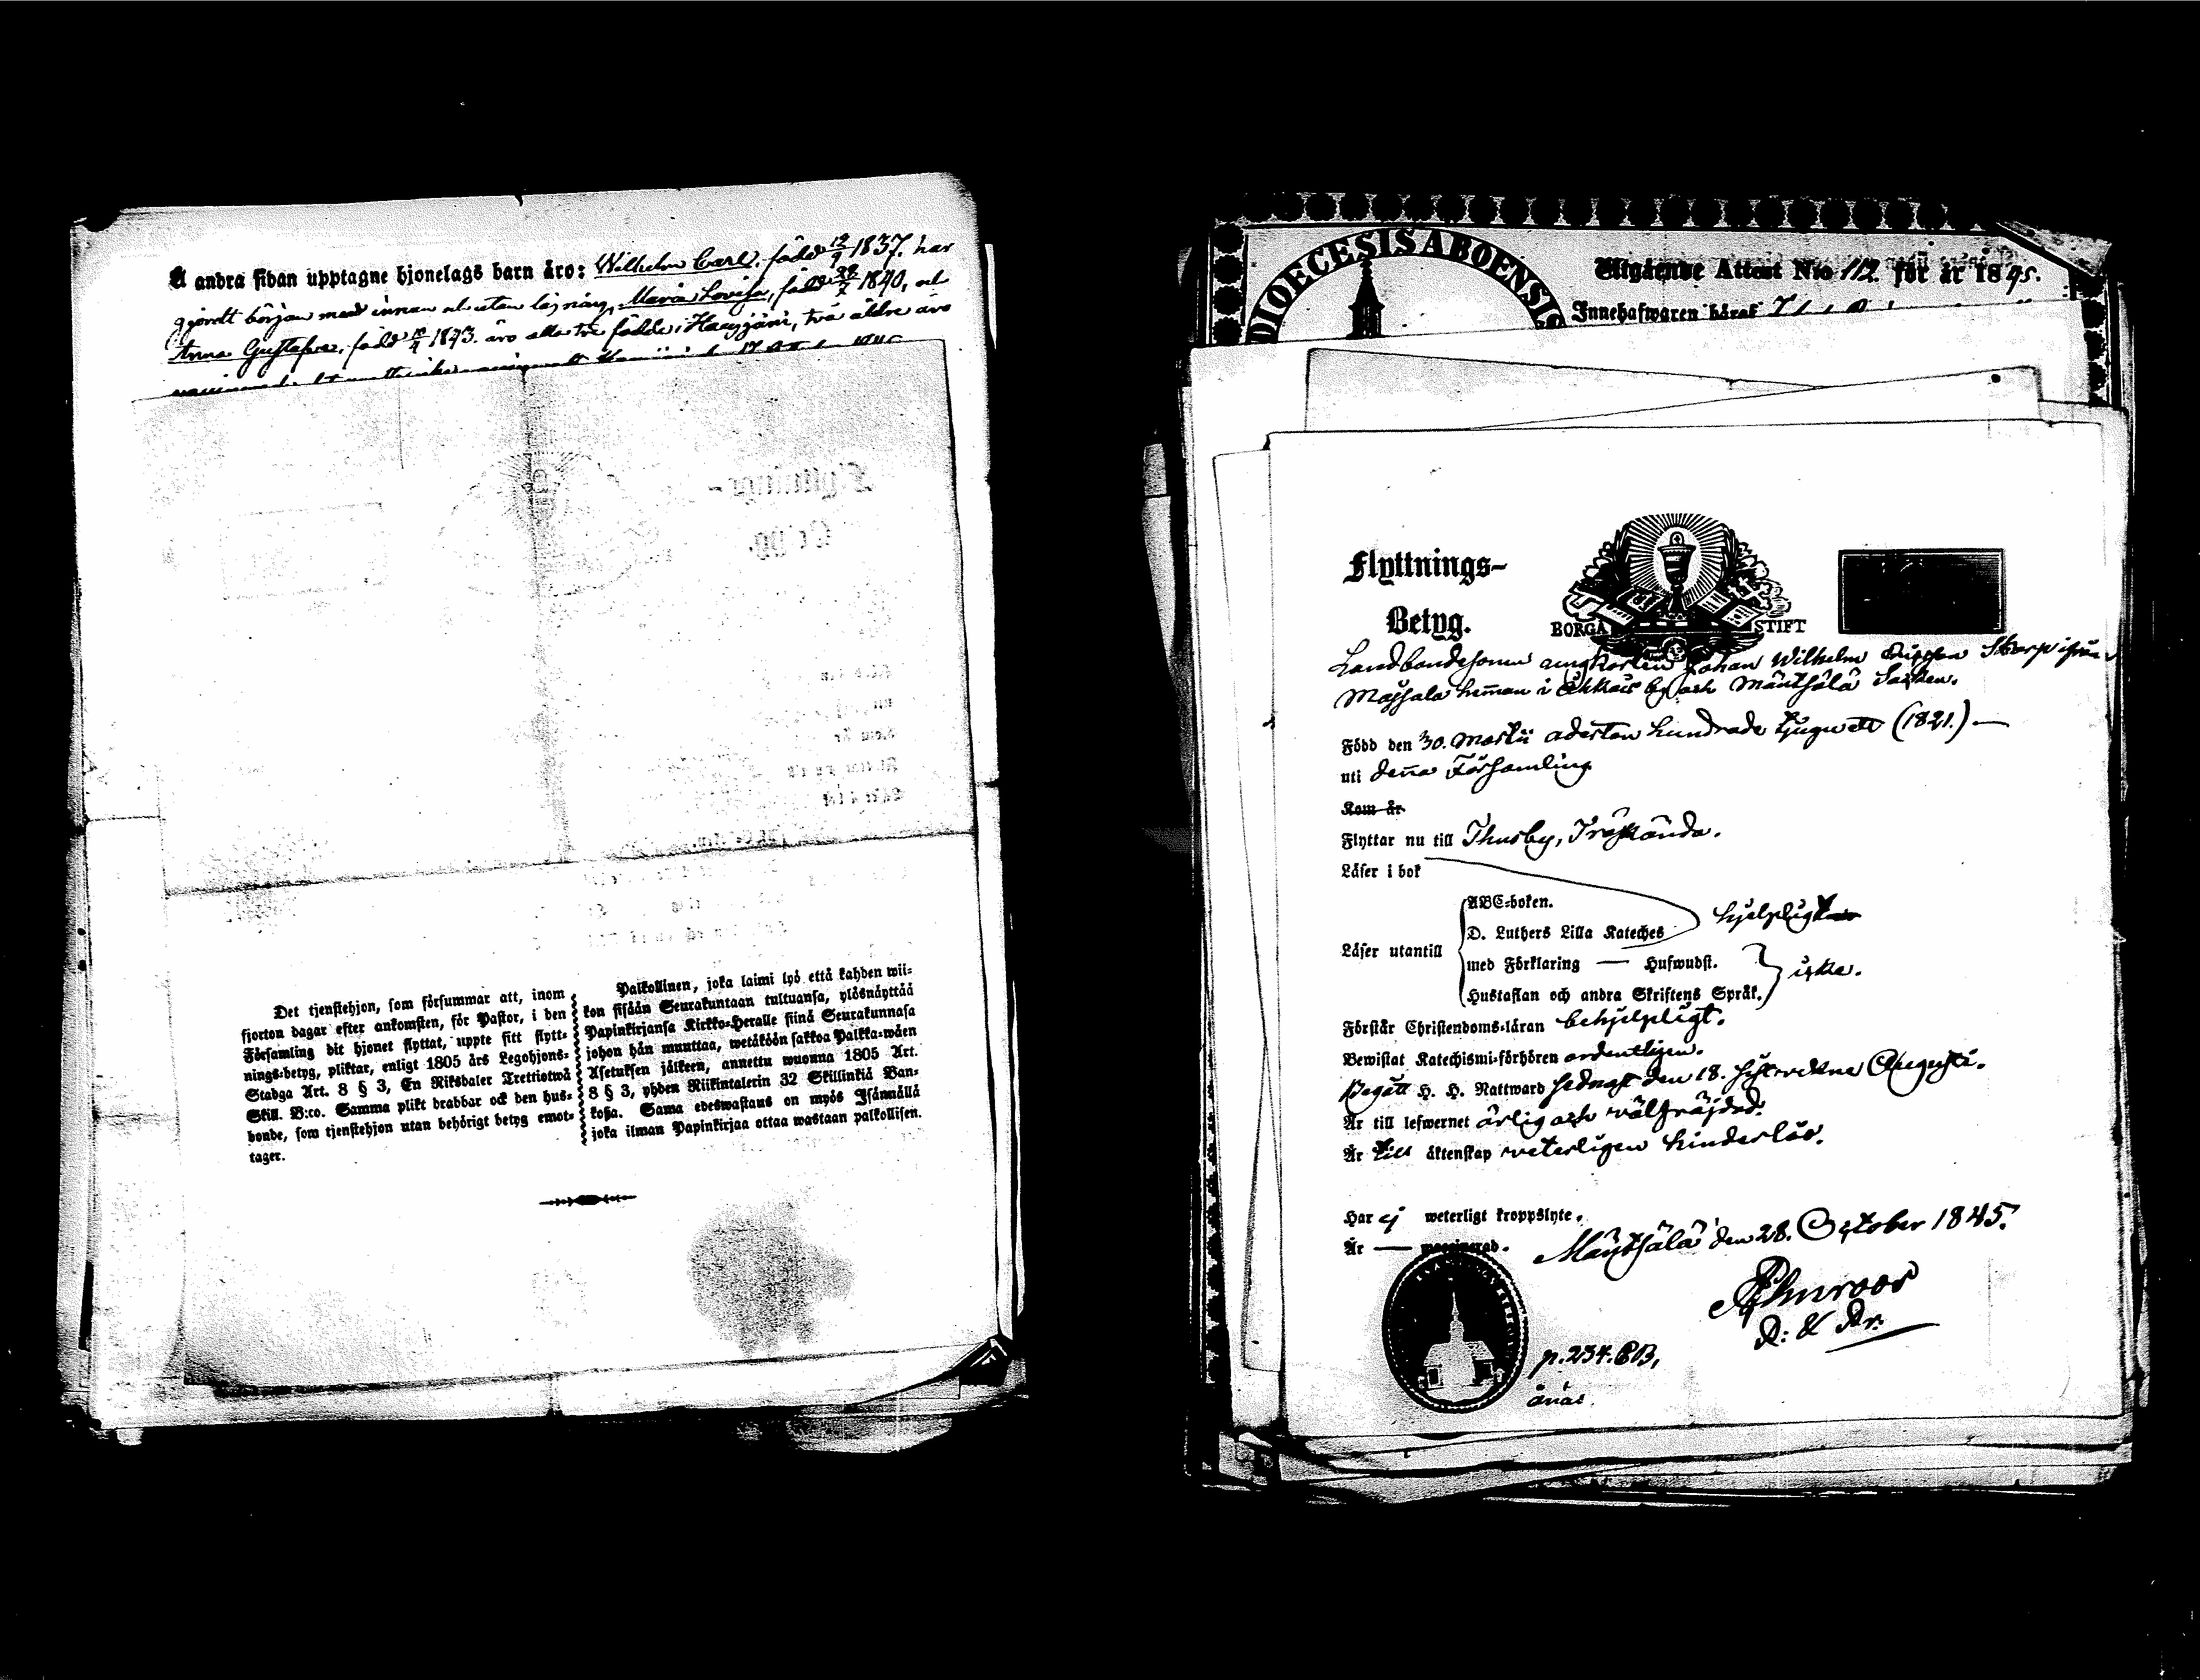 Å andra sidan upptagne hjonelags barn äro: Wilhelm Carl, född 12/9 1837. har
gjordt början med innan och utan läsning, Maria Lovisa, född 28/7 1840, och
Anna Gustafva, född 12/4 1843. äro alla tre födde i Hausjärvi, två äldre äro
Det tjenstehjon, som försummar att, inom
fjorton dagar efter ankomsten, för Pastor, i den
Församling dit hjonet flyttat, uppte sitt flytt-
nings-betyg, pliktar, enligt 1805 års Legohjons-
Stadga Art. 8 § 3, En Riksdaler Trettiotwå
Skill. B:co. Samma plikt drabbar ock den hus-
bonde, som tjenstehjon utan behörigt betyg emot-
tager.
Palkollinen, joka laimi lyö että kahden wii-
kon sisään Seurakuntaan tultuansa, ylösnäyttää
Papinkirjansa Kirkko-Heralle siinä Seurakunnasa
johon hän muuttaa, wetäköön sakkoa Palkka-wäen
Asetuksen jälkeen, annettu wuonna 1805 Art.
8 § 3, yhden Riikintalerin 32 Skillinkiä Ban-
kosa. Sama edeswastaus on myös Isännällä
joka ilman Papinkirjaa ottaa wastaan palkollisen.
DIOECESIS ABOENSIS
Utgående Attest N:o 112. för år 1845.
Innehafwaren häraf
Flyttnings-
Betyg.
BORGÅ STIFT
Landbondesonen ungkarlen Johan Wilhelm Skarp ifrån
Massala heman i by och Mäntsälä Socken.
Född den 30. Martii adertan hundrade tjuguett (1821.) —
uti denna Församling
Kom år
Flyttar nu till Thusby, Träskända.
Läser i bok
ABC-boken.
D. Luthers Lilla Kateches hjelpligt
Läser utantill
med Förklaring — Hufwudst.
Hustaflan och andra Skriftens Språk. icke.
Förstår Christendoms-läran behjelpligt.
Bewistat Katechismi-förhören ordentligen.
Begått H. H. Nattward sednast den 18. sistvekne Augusti.
Är till lefwernet ärlig och välfräjdad.
Är till äktenskap veterligen hinderlös.
Har ej weterligt kroppslyte.
Är — waccinerad.
Mäntsälä den 28. October 1845.
p. 234. CB,